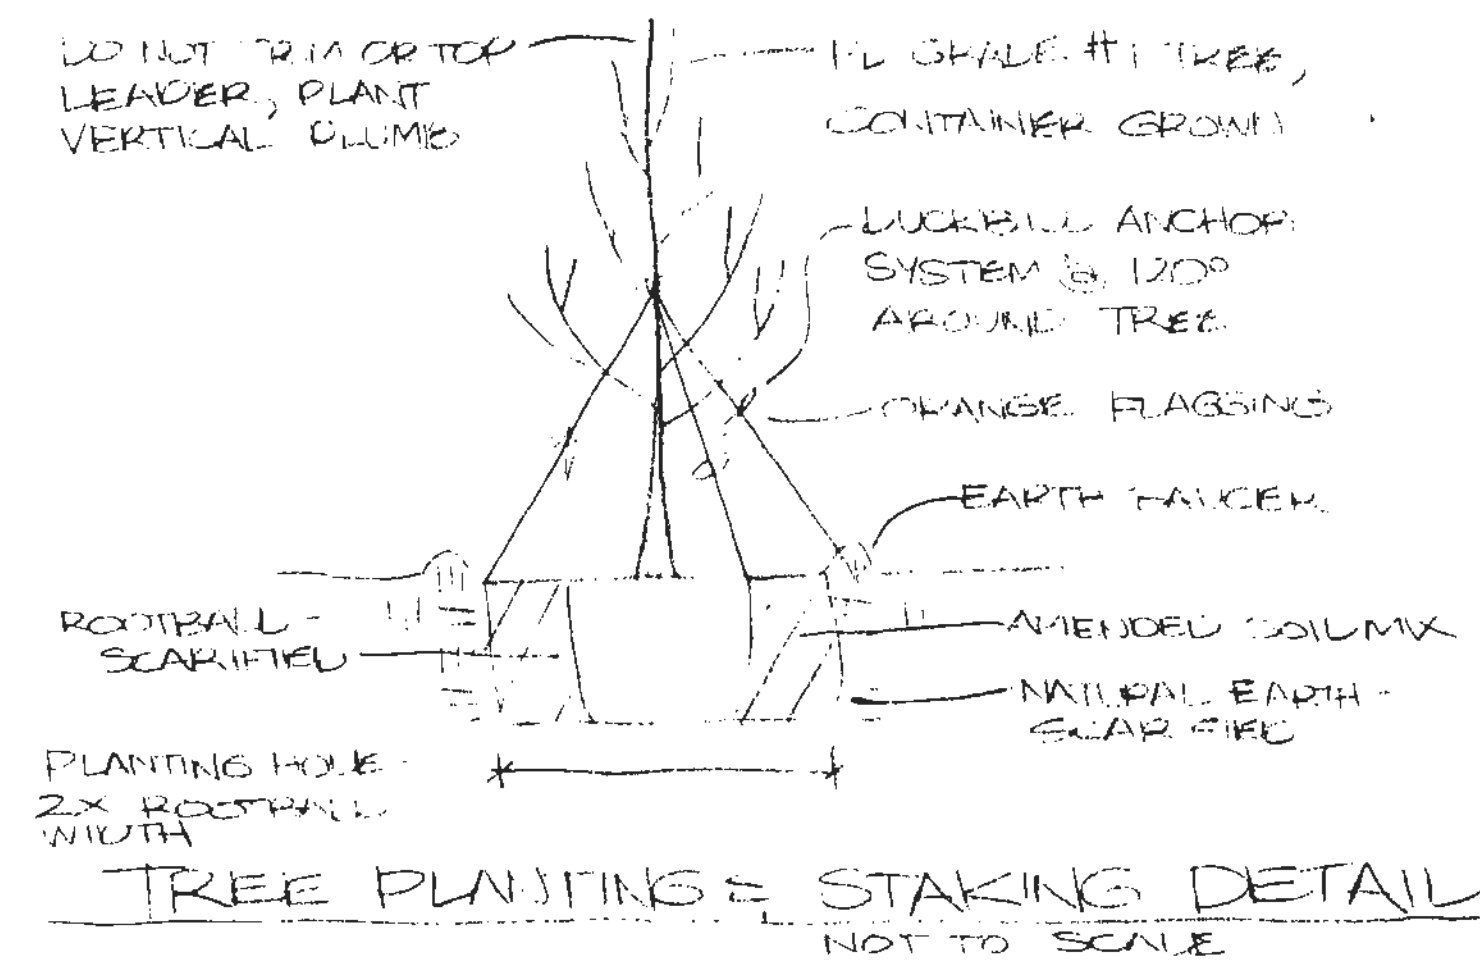 DO NOT TRIM OR TOP
LEADER, PLANT
VERTICAL PLUMB
FL GRADE #1 TREE,
CONTAINER GROWN
DUCKBILL ANCHOR
SYSTEM @ 120°
AROUND TREE
ORANGE FLAGGING
EARTH SAUCER
ROOTBALL -
SCARIFIED
AMENDED SOIL MIX
NATURAL EARTH -
SCARIFIED
PLANTING HOLE -
2X ROOTBALL
WIDTH
TREE PLANTING & STAKING DETAIL
NOT TO SCALE